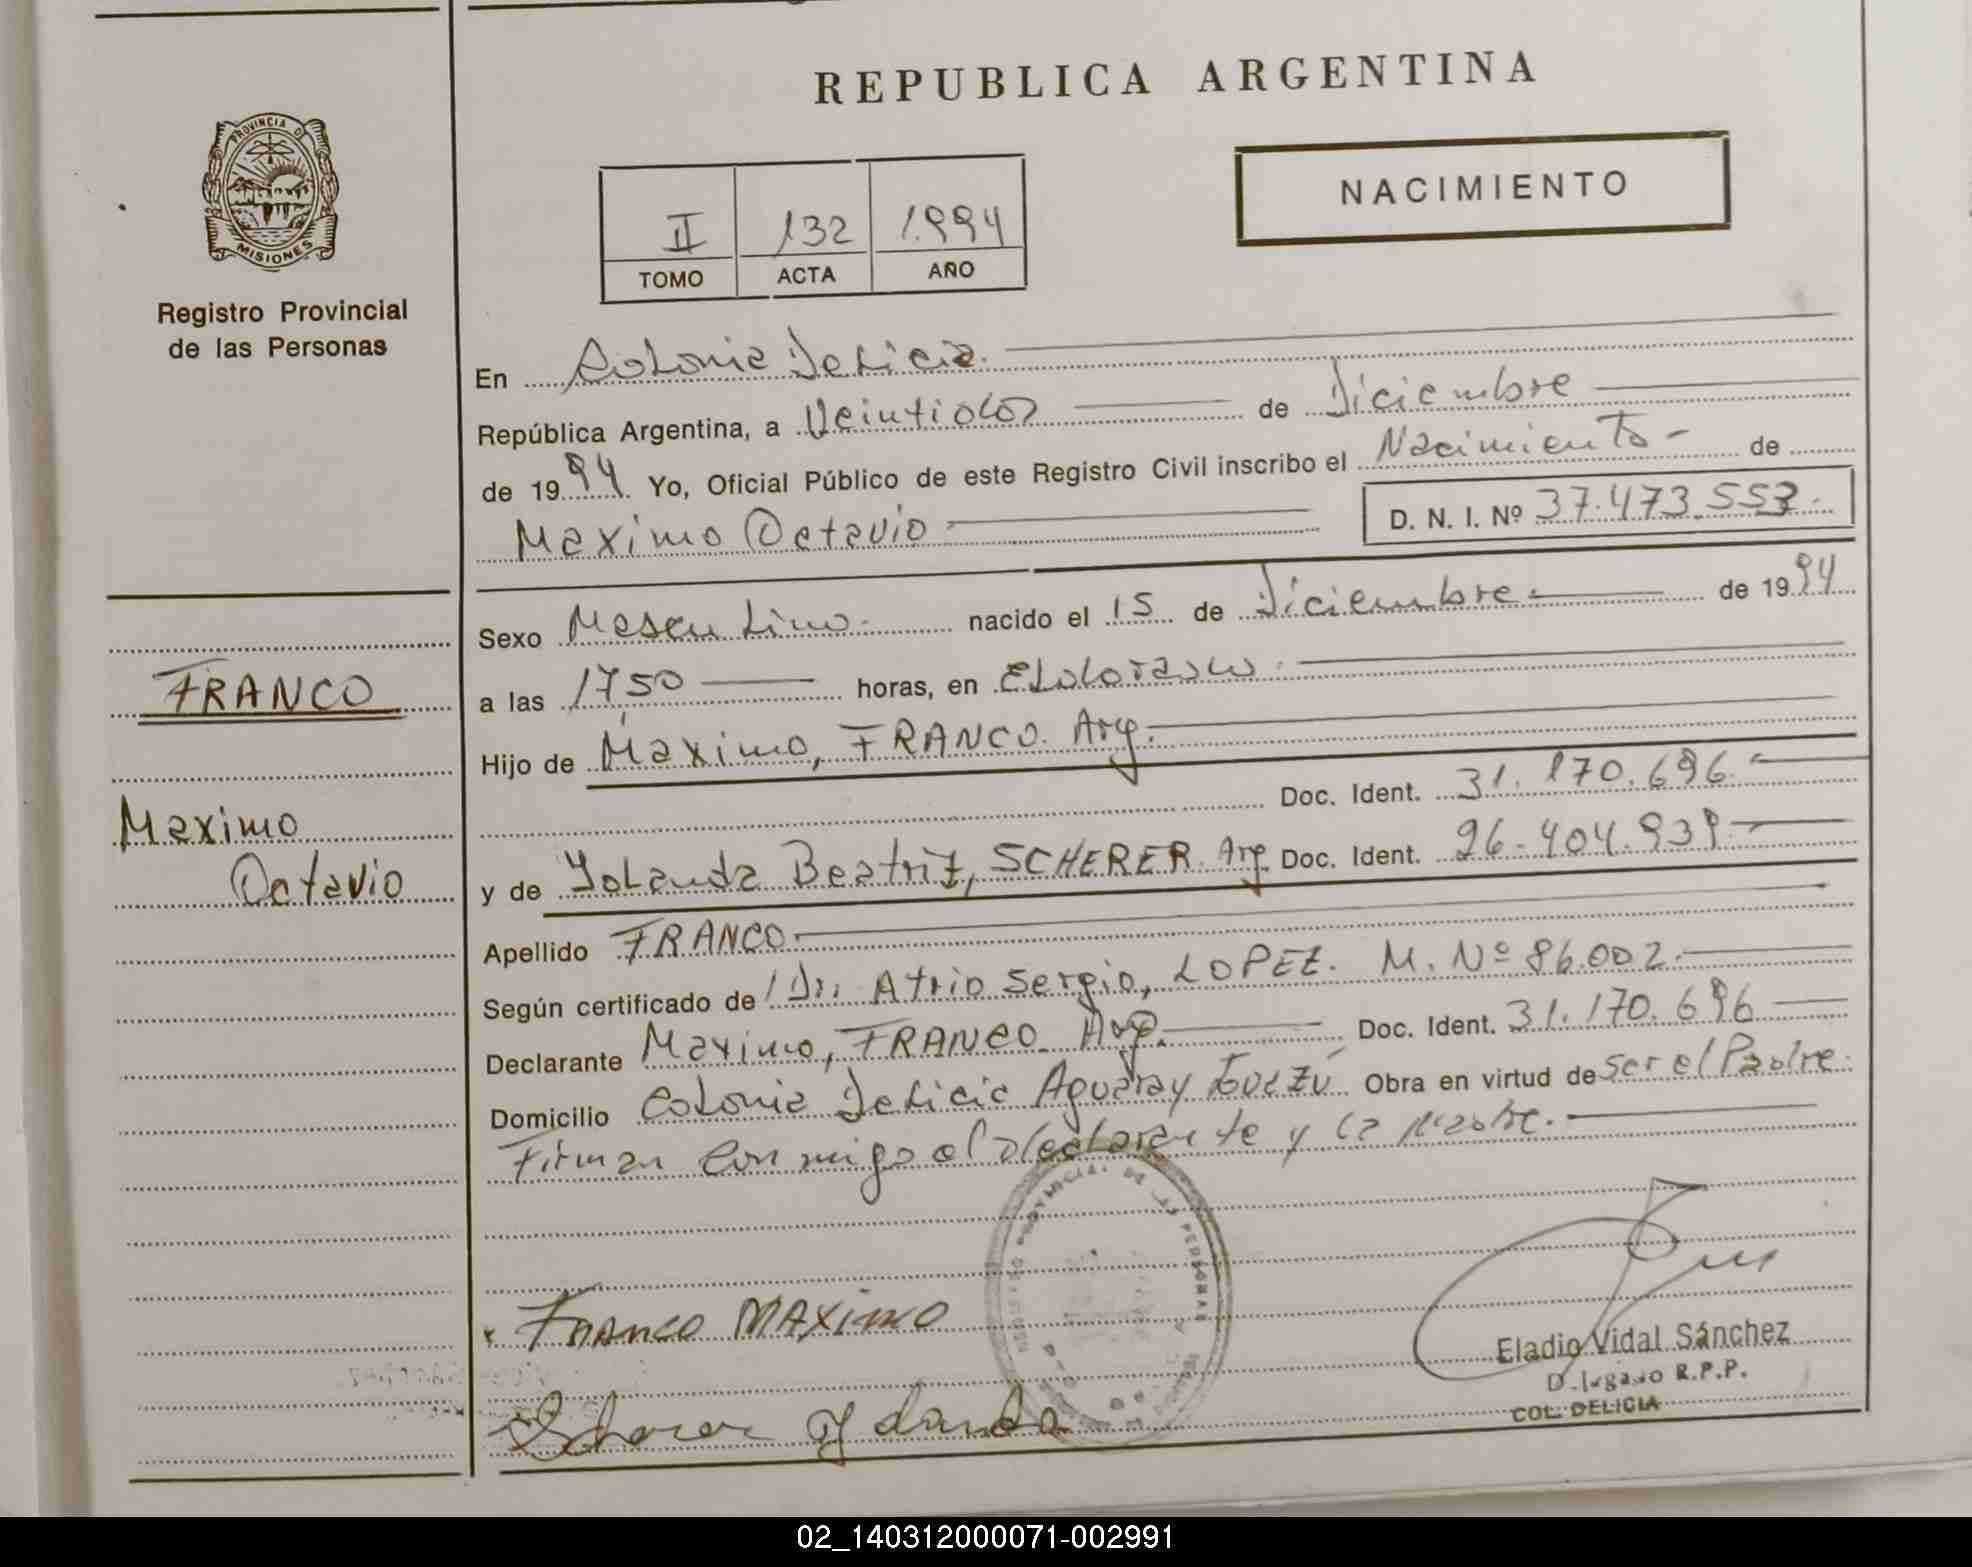 REPUBLICA ARGENTINA
NACIMIENTO
II 132 1.994
TOMO ACTA AÑO
PROVINCIA D
MISIONES
Registro Provincial
de las Personas
FRANCO
Maximo
Octavio
En Colonia Delicia.
República Argentina, a Veintidos de Diciembre
de 1994 Yo, Oficial Público de este Registro Civil inscribo el Nacimiento - de
Maximo Octavio D. N. I. Nº 37.473.553.
Sexo Masculino. nacido el 15 de Diciembre. de 1994
a las 17,50 horas, en Eldorado.
Hijo de Maximo, FRANCO. Arg.
Doc. Ident. 31.170.696.
y de Yolanda Beatriz, SCHERER. Arg. Doc. Ident. 26.404.939.
Apellido FRANCO.
Según certificado de Dr. Atrio Sergio, LOPEZ. M. Nº 86.002.
Declarante Maximo, FRANCO. Arg. Doc. Ident. 31.170.696
Domicilio Colonia Delicia Aguaray Guazú Obra en virtud de ser el Padre.
Firman conmigo el declarante y la Madre.
FRANCO MAXIMO
Scherer Yolanda
Eladio Vidal Sánchez
Delegado R.P.P.
COL. DELICIA
02_140312000071-002991